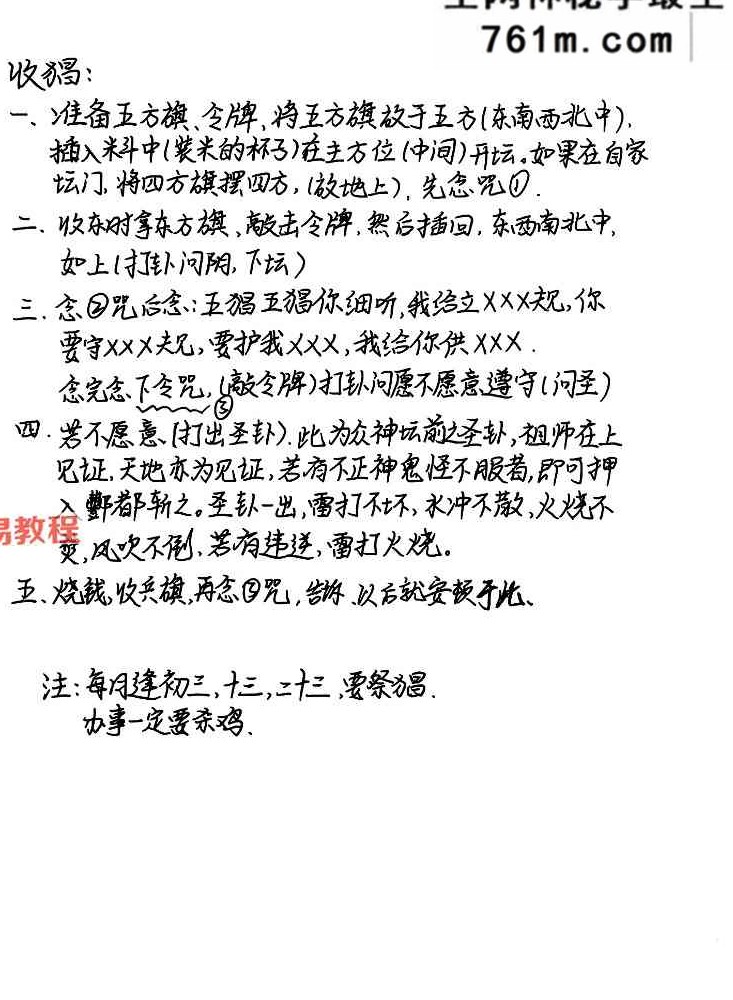 761m.com
收猖:
一、准备五方旗、令牌、将五方旗放于五方(东南西北中),
插入米斗中(装米的杯子)在主方位(中间)开坛。如果在自家
坛门,将四方旗摆四方,(放地上),先念咒①.
二、收东时拿东方旗、敲击令牌,然后插回,东西南北中,
如上(打卦问阴,下坛)
三、念②咒后念:五猖五猖你细听,我给立XXX规,你
要守XXX规,要护我XXX,我给你供XXX.
念完念下令咒,(敲令牌)打卦问愿不愿意遵守(问圣)
③
四.若不愿意(打出圣卦).此为众神坛前之圣卦,祖师在上
见证,天地亦为见证,若有不正神鬼怪不服者,即可押
入酆都斩之。圣卦一出,雷打不坏,水冲不散,火烧不
变,风吹不倒,若有违逆,雷打火烧。
易教程
五、烧钱,收兵旗,再念③咒,告诉、以后就安顿于此、
注:每月逢初三,十三,二十三、要祭猖.
办事一定要杀鸡.